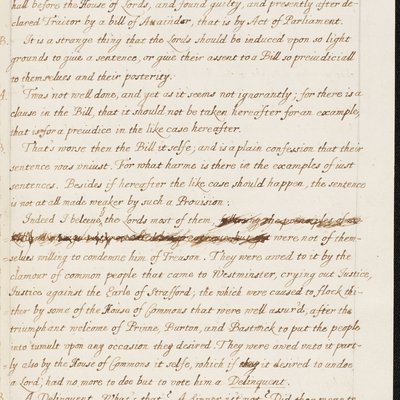 hall before the House of Lords, and found guilty, and presently after de-
clared Traitor by a bill of Attainder, that is by Act of Parliament.
B. It is a strange thing that the Lords should be induced upon so light
grounds to giue a sentence, or giue their assent to a Bill so preiudiciall
to themselues and their posterity.
A. Twas not well done, and yet as it seems not ignorantly; for there is a
clause in the Bill, that it should not be taken hereafter for an example,
that is for a preiudice in the like case hereafter.
B. That's worse then the Bill it selfe; and is a plain confession that their
sentence was uniust. For what harme is there in the examples of iust
sentences. Besides if hereafter the like case should happen, the sentence
is not at all made weaker by such a Provision.
Indeed I beleeue yt the Lords most of them,
were not of them-
selues willing to condemne him of Treason. They were awed to it by the
clamour of common people that came to Westminster, crying out Justice,
Justice against the Earle of Strafford; the which were caused to flock thi-
ther by some of the House of Commons that were well assur'd, after the
triumphant welcome of Prinne, Burton, and Bastwick to put the people
into tumult upon any occasion they desired. They were awed unto it part-
ly also by the House of Commons it selfe, which if it desired to undoe
a Lord, had no more to doe but to vote him a Delinquent.
A Delinquent. What's that?